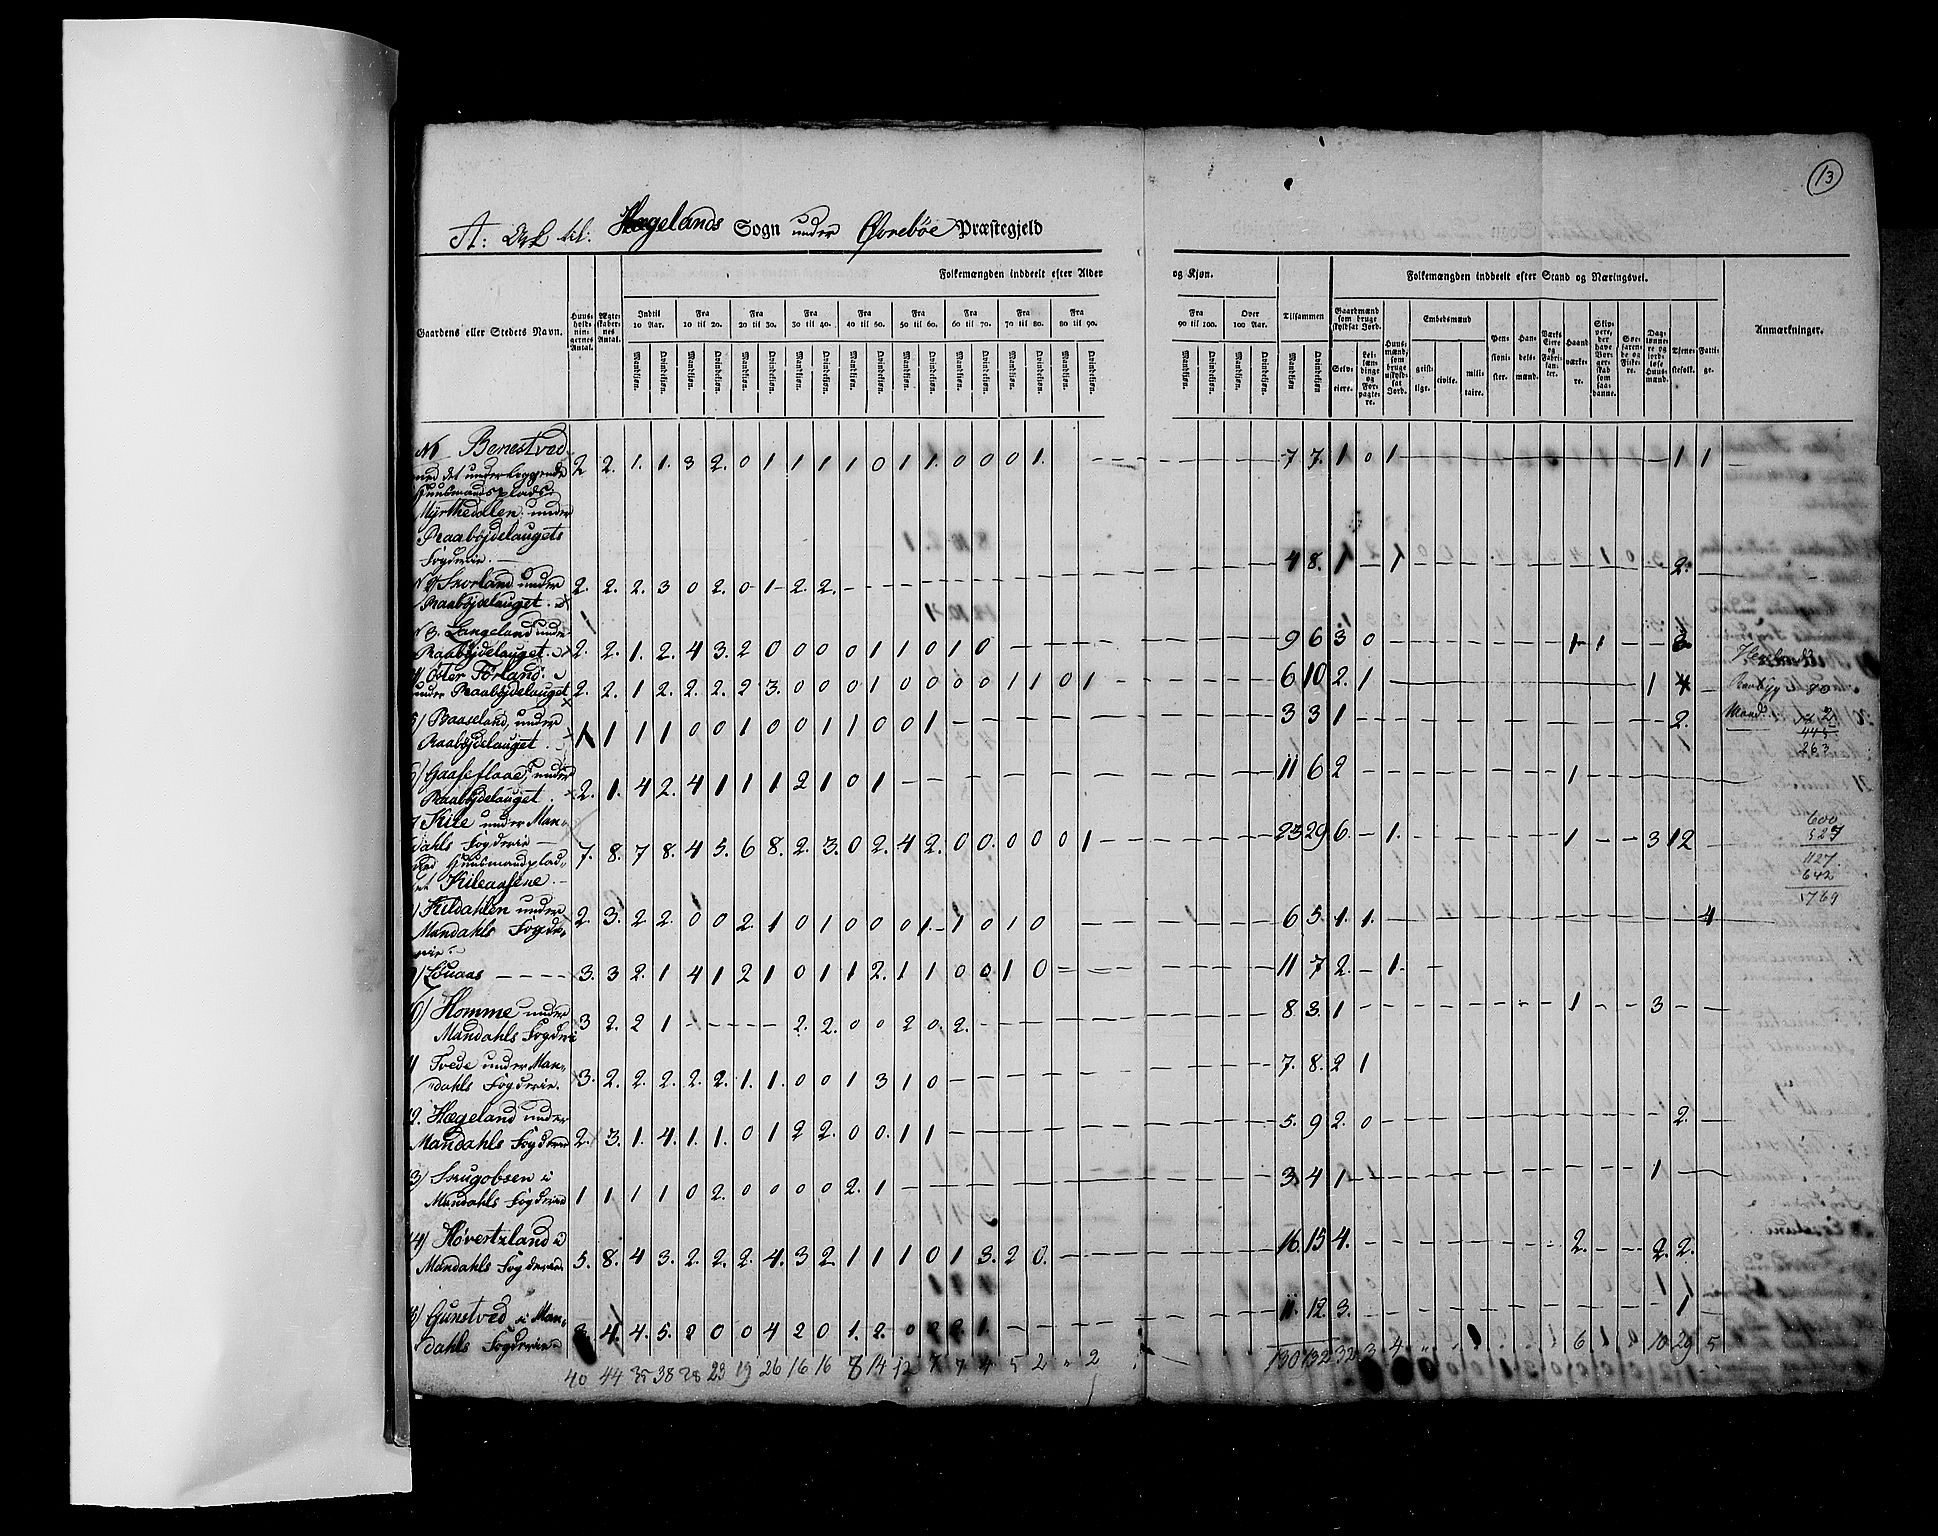 13
A: til: Hægelands Sogn under Øvrebøe Præstegjeld
Gaardens eller Stedets Navn.
Huus-holdningernes Antal.
Ægteskabernes Antal.
Folkemængden inddeelt efter Alder og Kjøn.
Indtil 10 Aar.
Fra 10 til 20.
Fra 20 til 30.
Fra 30 til 40.
Fra 40 til 50.
Fra 50 til 60.
Fra 60 til 70.
Fra 70 til 80.
Fra 80 til 90.
Fra 90 til 100.
Over 100 Aar.
Tilsammen
Mandkjøn. Qvindekjøn.
Folkemængden inddeelt efter Stand og Næringsvei.
Gaardmænd som bruge skyldsat Jord.
Selveiere.
Leilændinge og Forpagtere.
Huusmænd, som bruge uskyldsat Jord.
Embedsmænd
geistlige. civile. militaire.
Pensionister.
Handelsmænd.
Værks Eiere og Fabrikanter.
Haandværkere.
Søefarende og Fiskere.
Daglønnere og jordløse Huusmænd.
Tjenestefolk.
Fattige.
Anmærkninger.
N1 Benestved 2 2. 1. 1. 3 2. 0 1 1 1 1 0 1 1. 0 0 0 1. 7 7. 1 0 1 1 1
med det underliggende
Huusmandsplads
Myrthedollen under
Raabøjdelaugets
Fogderie.
N 2 Skorland under 2. 2. 2. 3 0 2. 0 1 2. 2. 4 8. 1 1 2.
Raabøjdelauget.
3. Langeland under
Raabøjdelauget. 2. 2. 1. 2. 4 3. 2 0 0 0 0 1 1 0 1 0 9 6 3 0 1 1
Øster Førland
under Raabøjdelauget 2. 2. 1 2. 2. 2. 2 3. 0 0 0 1 0 0 0 0 1 1 0 1 6 10 2. 1 1 4
5) Baaseland, under
Raabøjdelauget. 1 1 1 1 0 0 1 0 0 1 1 0 0 1 3 3 1 2.
Gaaseflaae, under
Raabøjdelauget. 2. 1. 4 2. 4 1 1 1 2 1 0 1 11 6 2 1
Kile under Man-
dahls Fogderie 7. 8. 7 8. 4 5. 6 8. 2. 3. 0 2. 4 2. 0 0. 0 0 0 1 23 29 6. 1. 1 3 12
med Huusmandplad-
set Kileaasene.
Kildahlen under 2. 3. 2 2. 0 0 2. 1 0 1 0 0 0 1. 1 0 1 0 6 5. 1. 1. 4
Mandahls Fogde-
rie.
9) Løuaas 3. 3 2. 1 4 1 2 1 0 1 1 2. 1 1 0 0 1 0 11 7 2. 1.
10) Homme under 3 2. 2 1 2. 2. 0 0 2 0. 2. 8. 3. 1 1 3
Mandahls Fogderi
11 Tvede under Man-
dahls Fogderie. 3. 2. 2. 2. 2. 2. 1. 1. 0 0 1 3 1 0 7. 8. 2 1
12. Hægeland under
Mandahls Fogderie 2. 3. 1. 4. 1. 1. 0 1 2 2. 0 0. 1 1 5. 9 2. 0 2.
13) Skugobsen i
Mandahls Fogderie 1 1 1 1 0 2. 0 0 0 0 2. 1 3. 4 1 1
14) Høvertzland i
Mandahls Fogderie. 5. 8. 4 3. 2. 2. 2. 4. 3 2. 1 1 1 0 1 3. 2 0. 16. 15 4. 2. 2. 2.
15) Gunstved i Man-
dahls Fogderie 4. 4. 5. 2 0 0 4 2 0 1. 2. 0 1. 11. 12. 3. 1
40 44 35 38 28 23 19 26 16 16 8 14 12 7 7 4 5 2 " 2 130 132 32 3 4 6. 1 0 10 29 5
Raabyg 80
Mand
445
263
600
527
1127
642
1769